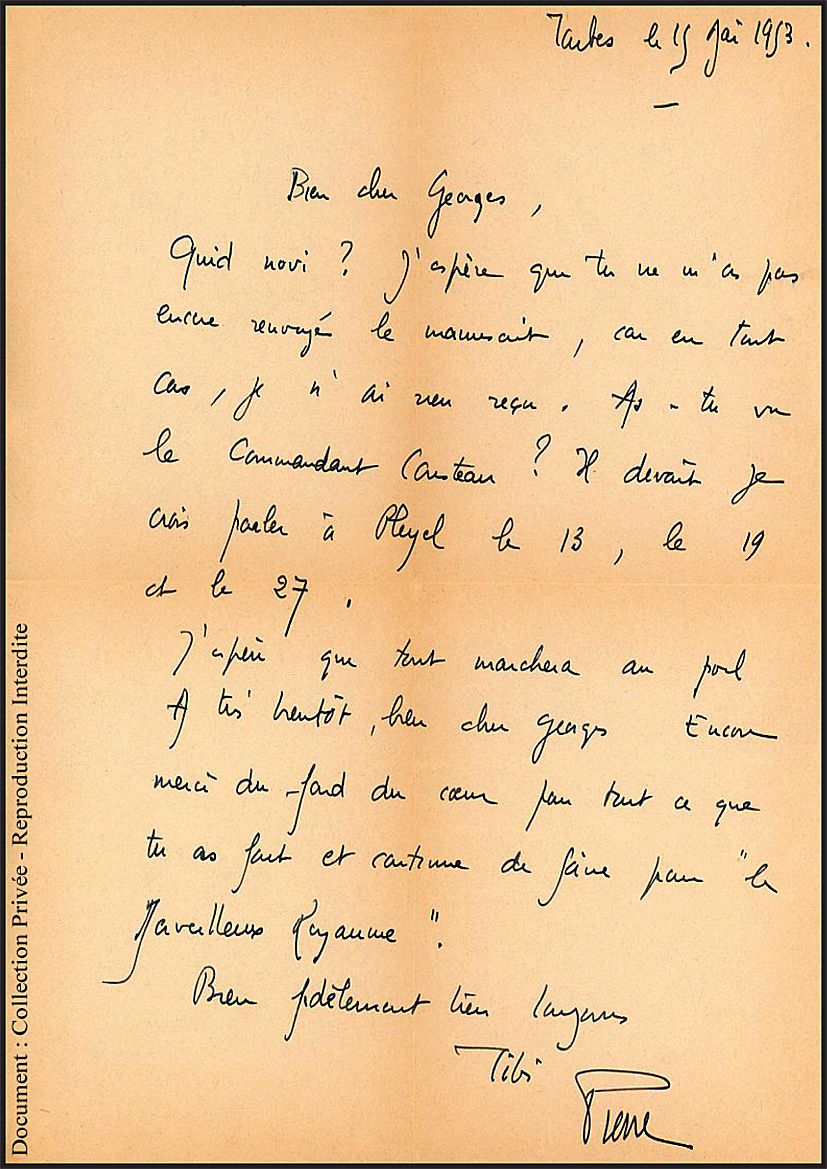 Tarbes le 15 Mai 1953.
Bien cher Georges,
Quid novi ? J'espère que tu ne m'as pas
encore renvoyé le manuscrit, car en tout
cas, je n'ai rien reçu. As-tu vu
le Commandant Cousteau ? Il devait je
crois parler à Pleyel le 13, le 19
et le 27.
J'espère que tout marchera au poil
A très bientôt, bien cher Georges Encore
merci du fond du cœur pour tout ce que
tu as fait et continue de faire pour "le
Merveilleux Royaume".
Bien fidèlement tien toujours
Tibi
Pierre
Document : Collection Privée - Reproduction Interdite